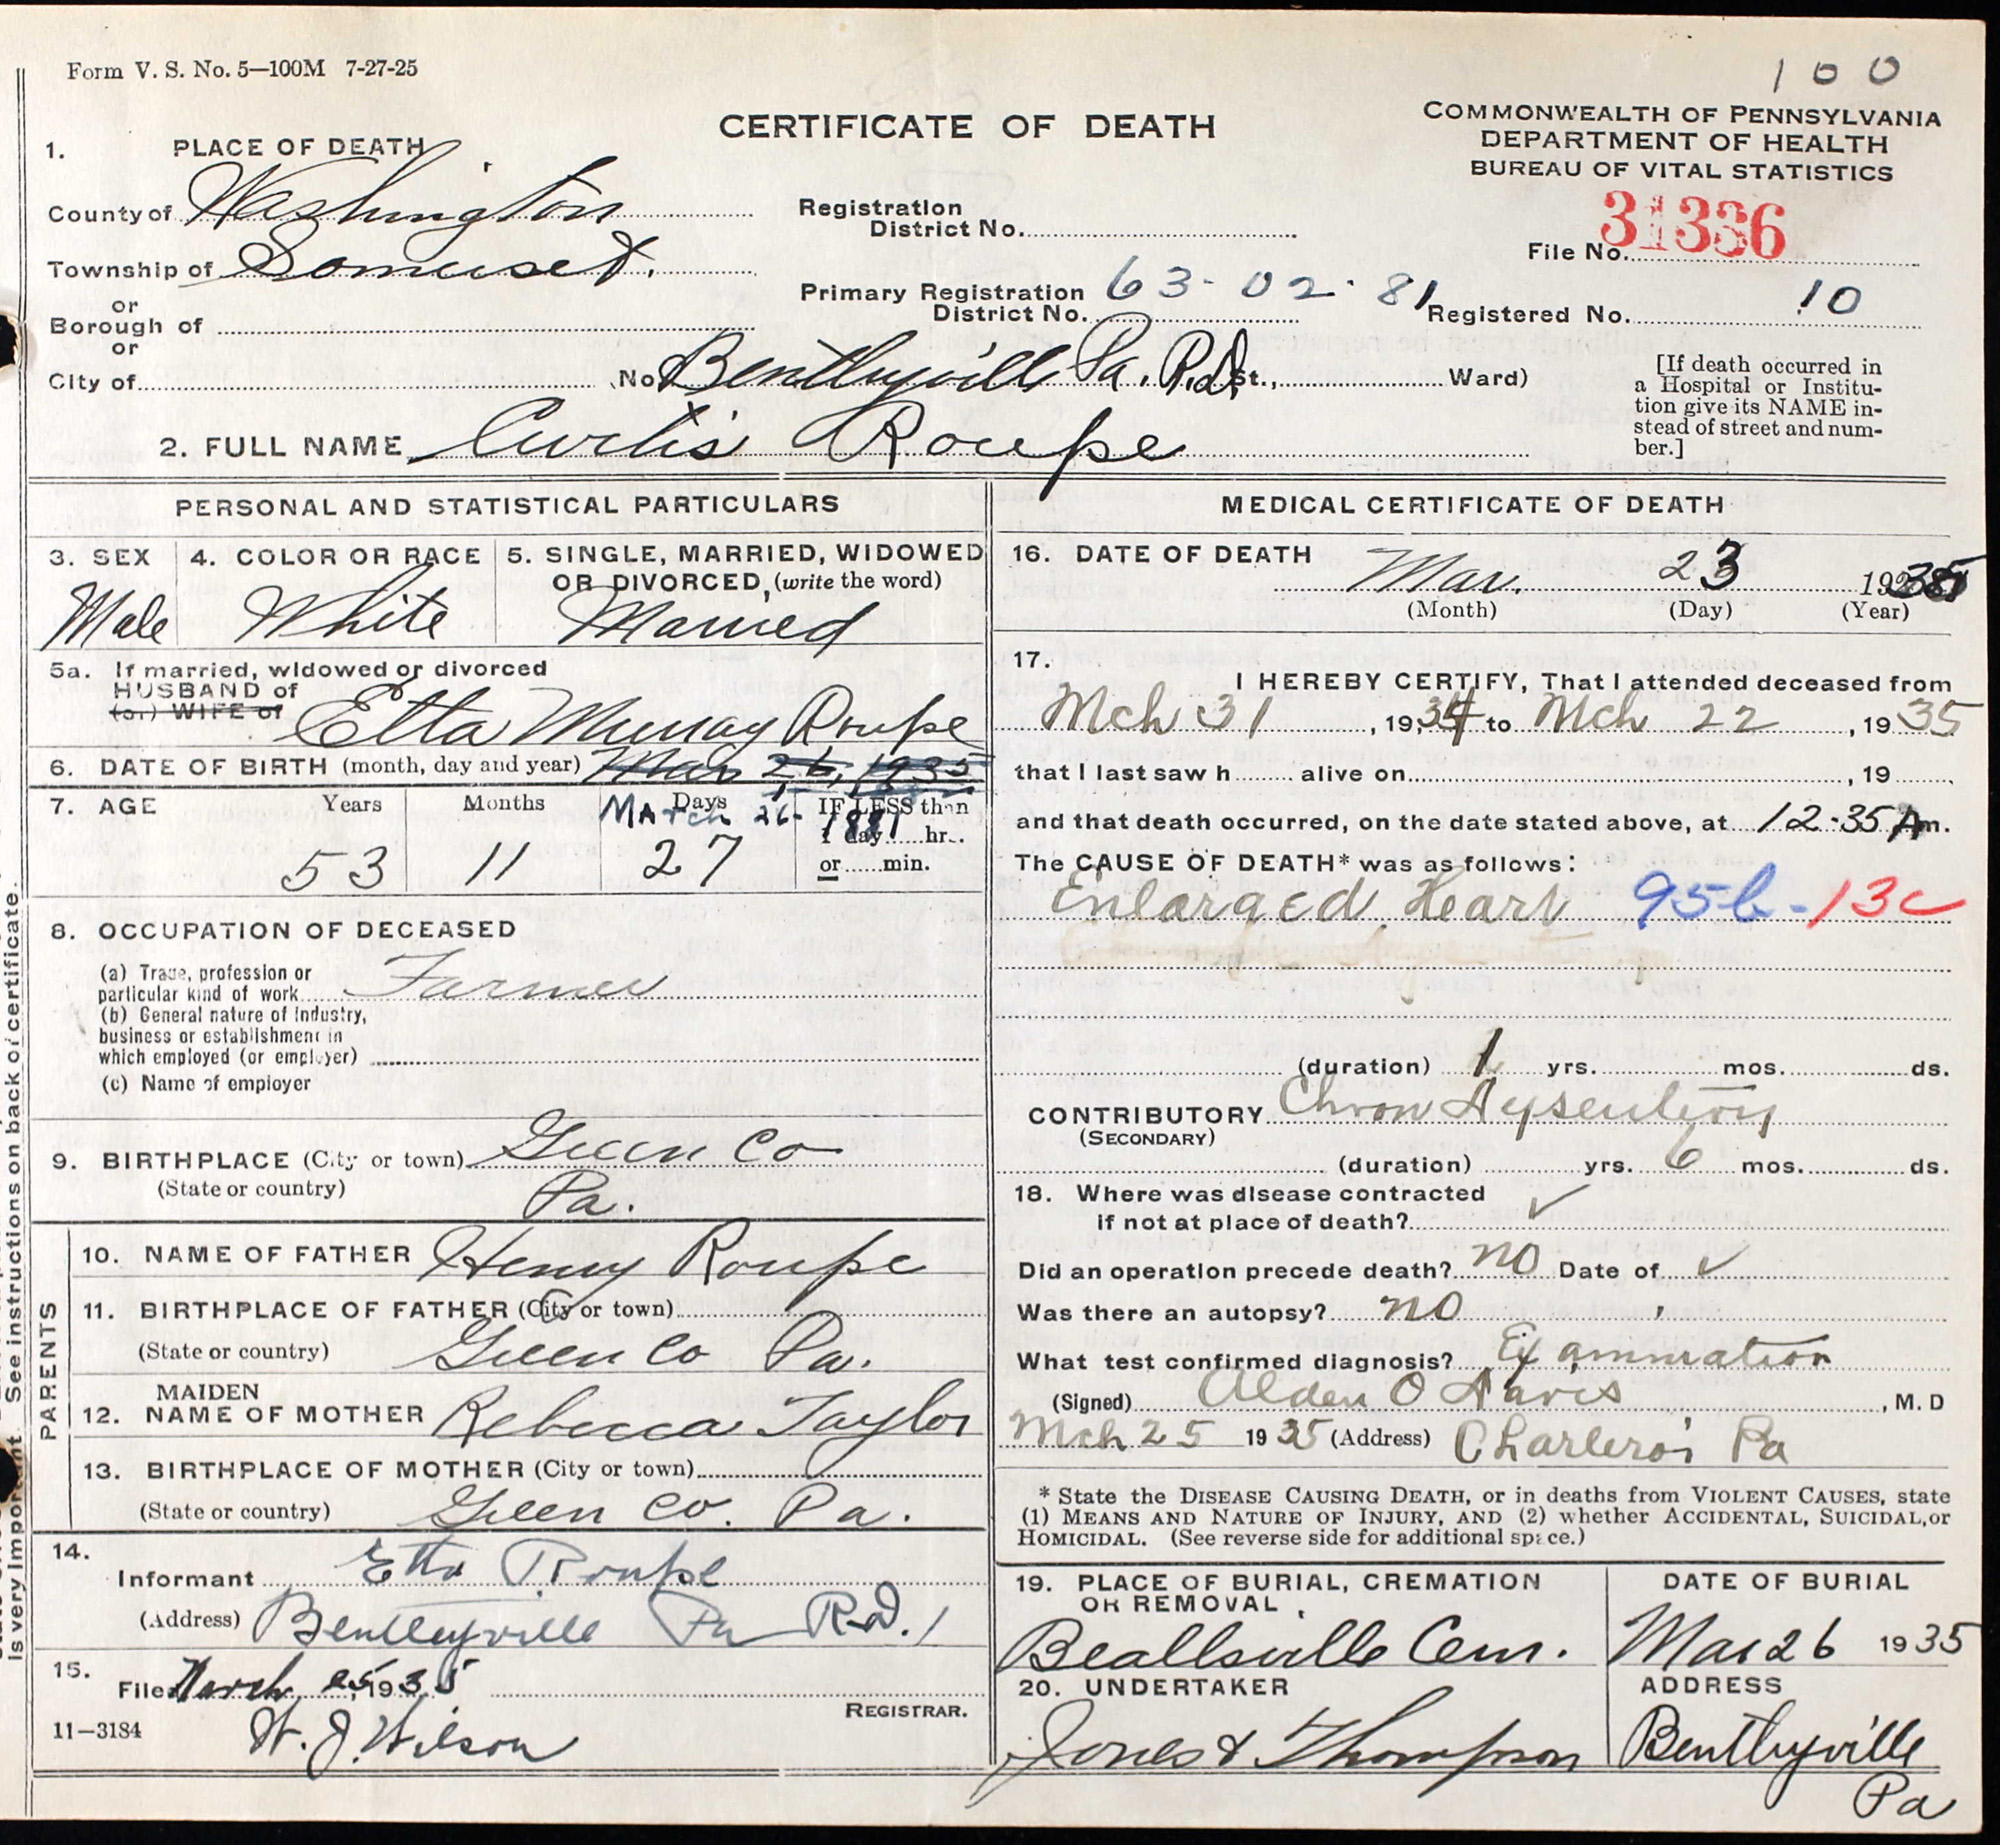 Form V. S. No. 5—100M 7-27-25
100
CERTIFICATE OF DEATH
COMMONWEALTH OF PENNSYLVANIA
DEPARTMENT OF HEALTH
BUREAU OF VITAL STATISTICS
1. PLACE OF DEATH
County of Washington
Township of Somerset.
or
Borough of
or
City of
Registration
District No.
File No. 31336
Primary Registration
District No. 63-02-81
Registered No. 10
No. Bentleyville Pa. R.d. St., Ward)
[If death occurred in
a Hospital or Institu-
tion give its NAME in-
stead of street and num-
ber.]
2. FULL NAME Curtis Roupe
PERSONAL AND STATISTICAL PARTICULARS
3. SEX
Male
4. COLOR OR RACE
White
5. SINGLE, MARRIED, WIDOWED
OR DIVORCED, (write the word)
Married
5a. If married, widowed or divorced
HUSBAND of
(or) WIFE of
Etta Murray Roupe
6. DATE OF BIRTH (month, day and year) Mar 26, 1935
March 26- 1881
7. AGE Years Months Days IF LESS than
1 day......hr..
or......min.
53 11 27
8. OCCUPATION OF DECEASED
(a) Trade, profession or
particular kind of work Farmer
(b) General nature of Industry,
business or establishment in
which employed (or employer)
(c) Name of employer
9. BIRTHPLACE (City or town) Green Co
(State or country) Pa.
PARENTS
10. NAME OF FATHER Henry Roupe
11. BIRTHPLACE OF FATHER (City or town)
(State or country) Green Co Pa.
12. MAIDEN
NAME OF MOTHER Rebecca Taylor
13. BIRTHPLACE OF MOTHER (City or town)
(State or country) Green Co. Pa.
14.
Informant Etta Roupe
(Address) Bentleyville Pa R.d. 1
15.
Filed March 25, 1935
W. J. Wilson
REGISTRAR.
11—3184
MEDICAL CERTIFICATE OF DEATH
16. DATE OF DEATH
Mar. 23 1935
(Month) (Day) (Year)
17.
I HEREBY CERTIFY, That I attended deceased from
Mch 31, 1934 to Mch 22, 1935
that I last saw h...... alive on......, 19
and that death occurred, on the date stated above, at 12-35 Am.
The CAUSE OF DEATH* was as follows:
Enlarged Heart 95b-13c
(duration) 1 yrs. mos. ds.
CONTRIBUTORY Chron Dysentery
(SECONDARY)
(duration) yrs. 6 mos. ds.
18. Where was disease contracted
if not at place of death? ✓
Did an operation precede death? no Date of ✓
Was there an autopsy? no
What test confirmed diagnosis? Examination
(Signed) Alden O Davis, M. D
Mch 25 1935 (Address) Charleroi Pa
* State the DISEASE CAUSING DEATH, or in deaths from VIOLENT CAUSES, state
(1) MEANS AND NATURE OF INJURY, AND (2) whether ACCIDENTAL, SUICIDAL, or
HOMICIDAL. (See reverse side for additional space.)
19. PLACE OF BURIAL, CREMATION
OR REMOVAL
Beallsville Cem.
DATE OF BURIAL
Mar 26 1935
20. UNDERTAKER
Jones & Thompson
ADDRESS
Bentleyville
Pa
is very important. See instructions on back of certificate.